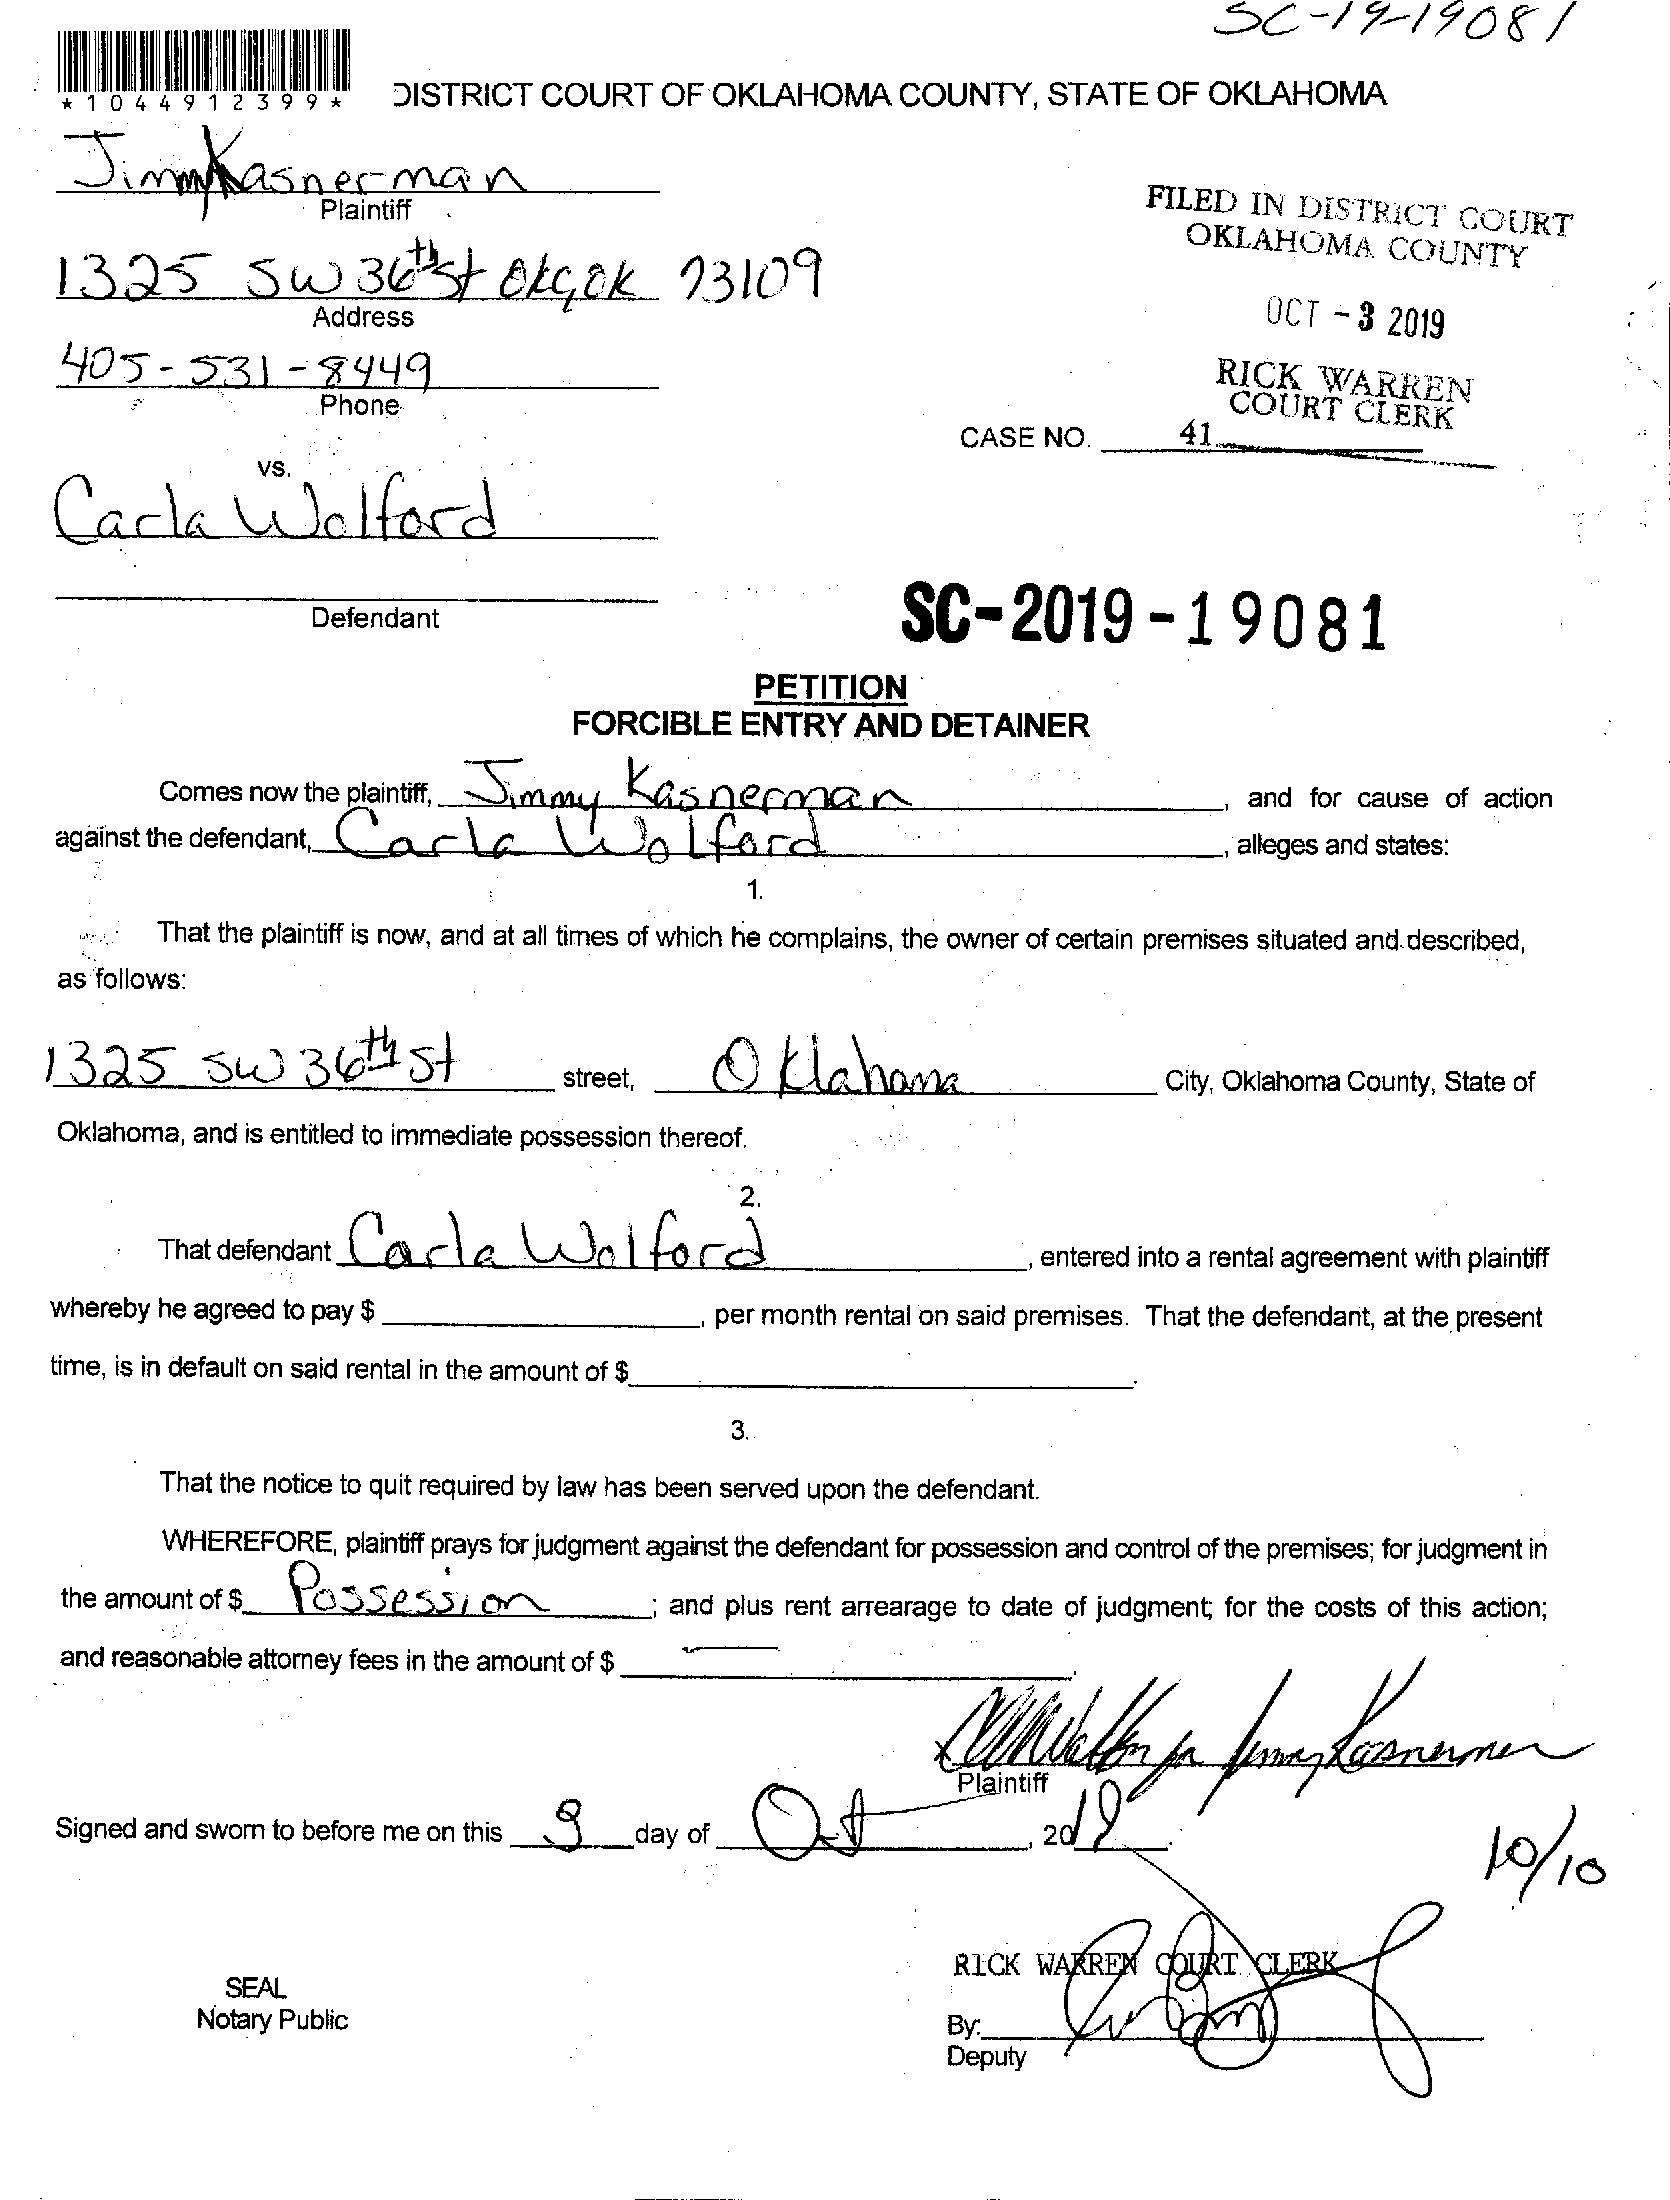 SC-19-19081
*1044912399*
DISTRICT COURT OF OKLAHOMA COUNTY, STATE OF OKLAHOMA
Jimmy Kasnerman
Plaintiff
FILED IN DISTRICT COURT
OKLAHOMA COUNTY
1325 SW 36th St OKC, OK 73109
Address
OCT - 3 2019
405-531-8449
Phone
RICK WARREN
COURT CLERK
CASE NO. 41
vs.
Carla Wolford
Defendant
SC-2019-19081
PETITION
FORCIBLE ENTRY AND DETAINER
Comes now the plaintiff, Jimmy Kasnerman, and for cause of action
against the defendant, Carla Wolford, alleges and states:
1.
That the plaintiff is now, and at all times of which he complains, the owner of certain premises situated and described,
as follows:
1325 SW 36th St street, Oklahoma City, Oklahoma County, State of
Oklahoma, and is entitled to immediate possession thereof.
2.
That defendant Carla Wolford, entered into a rental agreement with plaintiff
whereby he agreed to pay $ , per month rental on said premises. That the defendant, at the present
time, is in default on said rental in the amount of $ .
3.
That the notice to quit required by law has been served upon the defendant.
WHEREFORE, plaintiff prays for judgment against the defendant for possession and control of the premises; for judgment in
the amount of $ Possession; and plus rent arrearage to date of judgment; for the costs of this action;
and reasonable attorney fees in the amount of $ — .
x Jimmy Kasnerman
Plaintiff
Signed and sworn to before me on this 3 day of Oct, 2019.
10/10
RICK WARREN COURT CLERK
SEAL
Notary Public
By:
Deputy